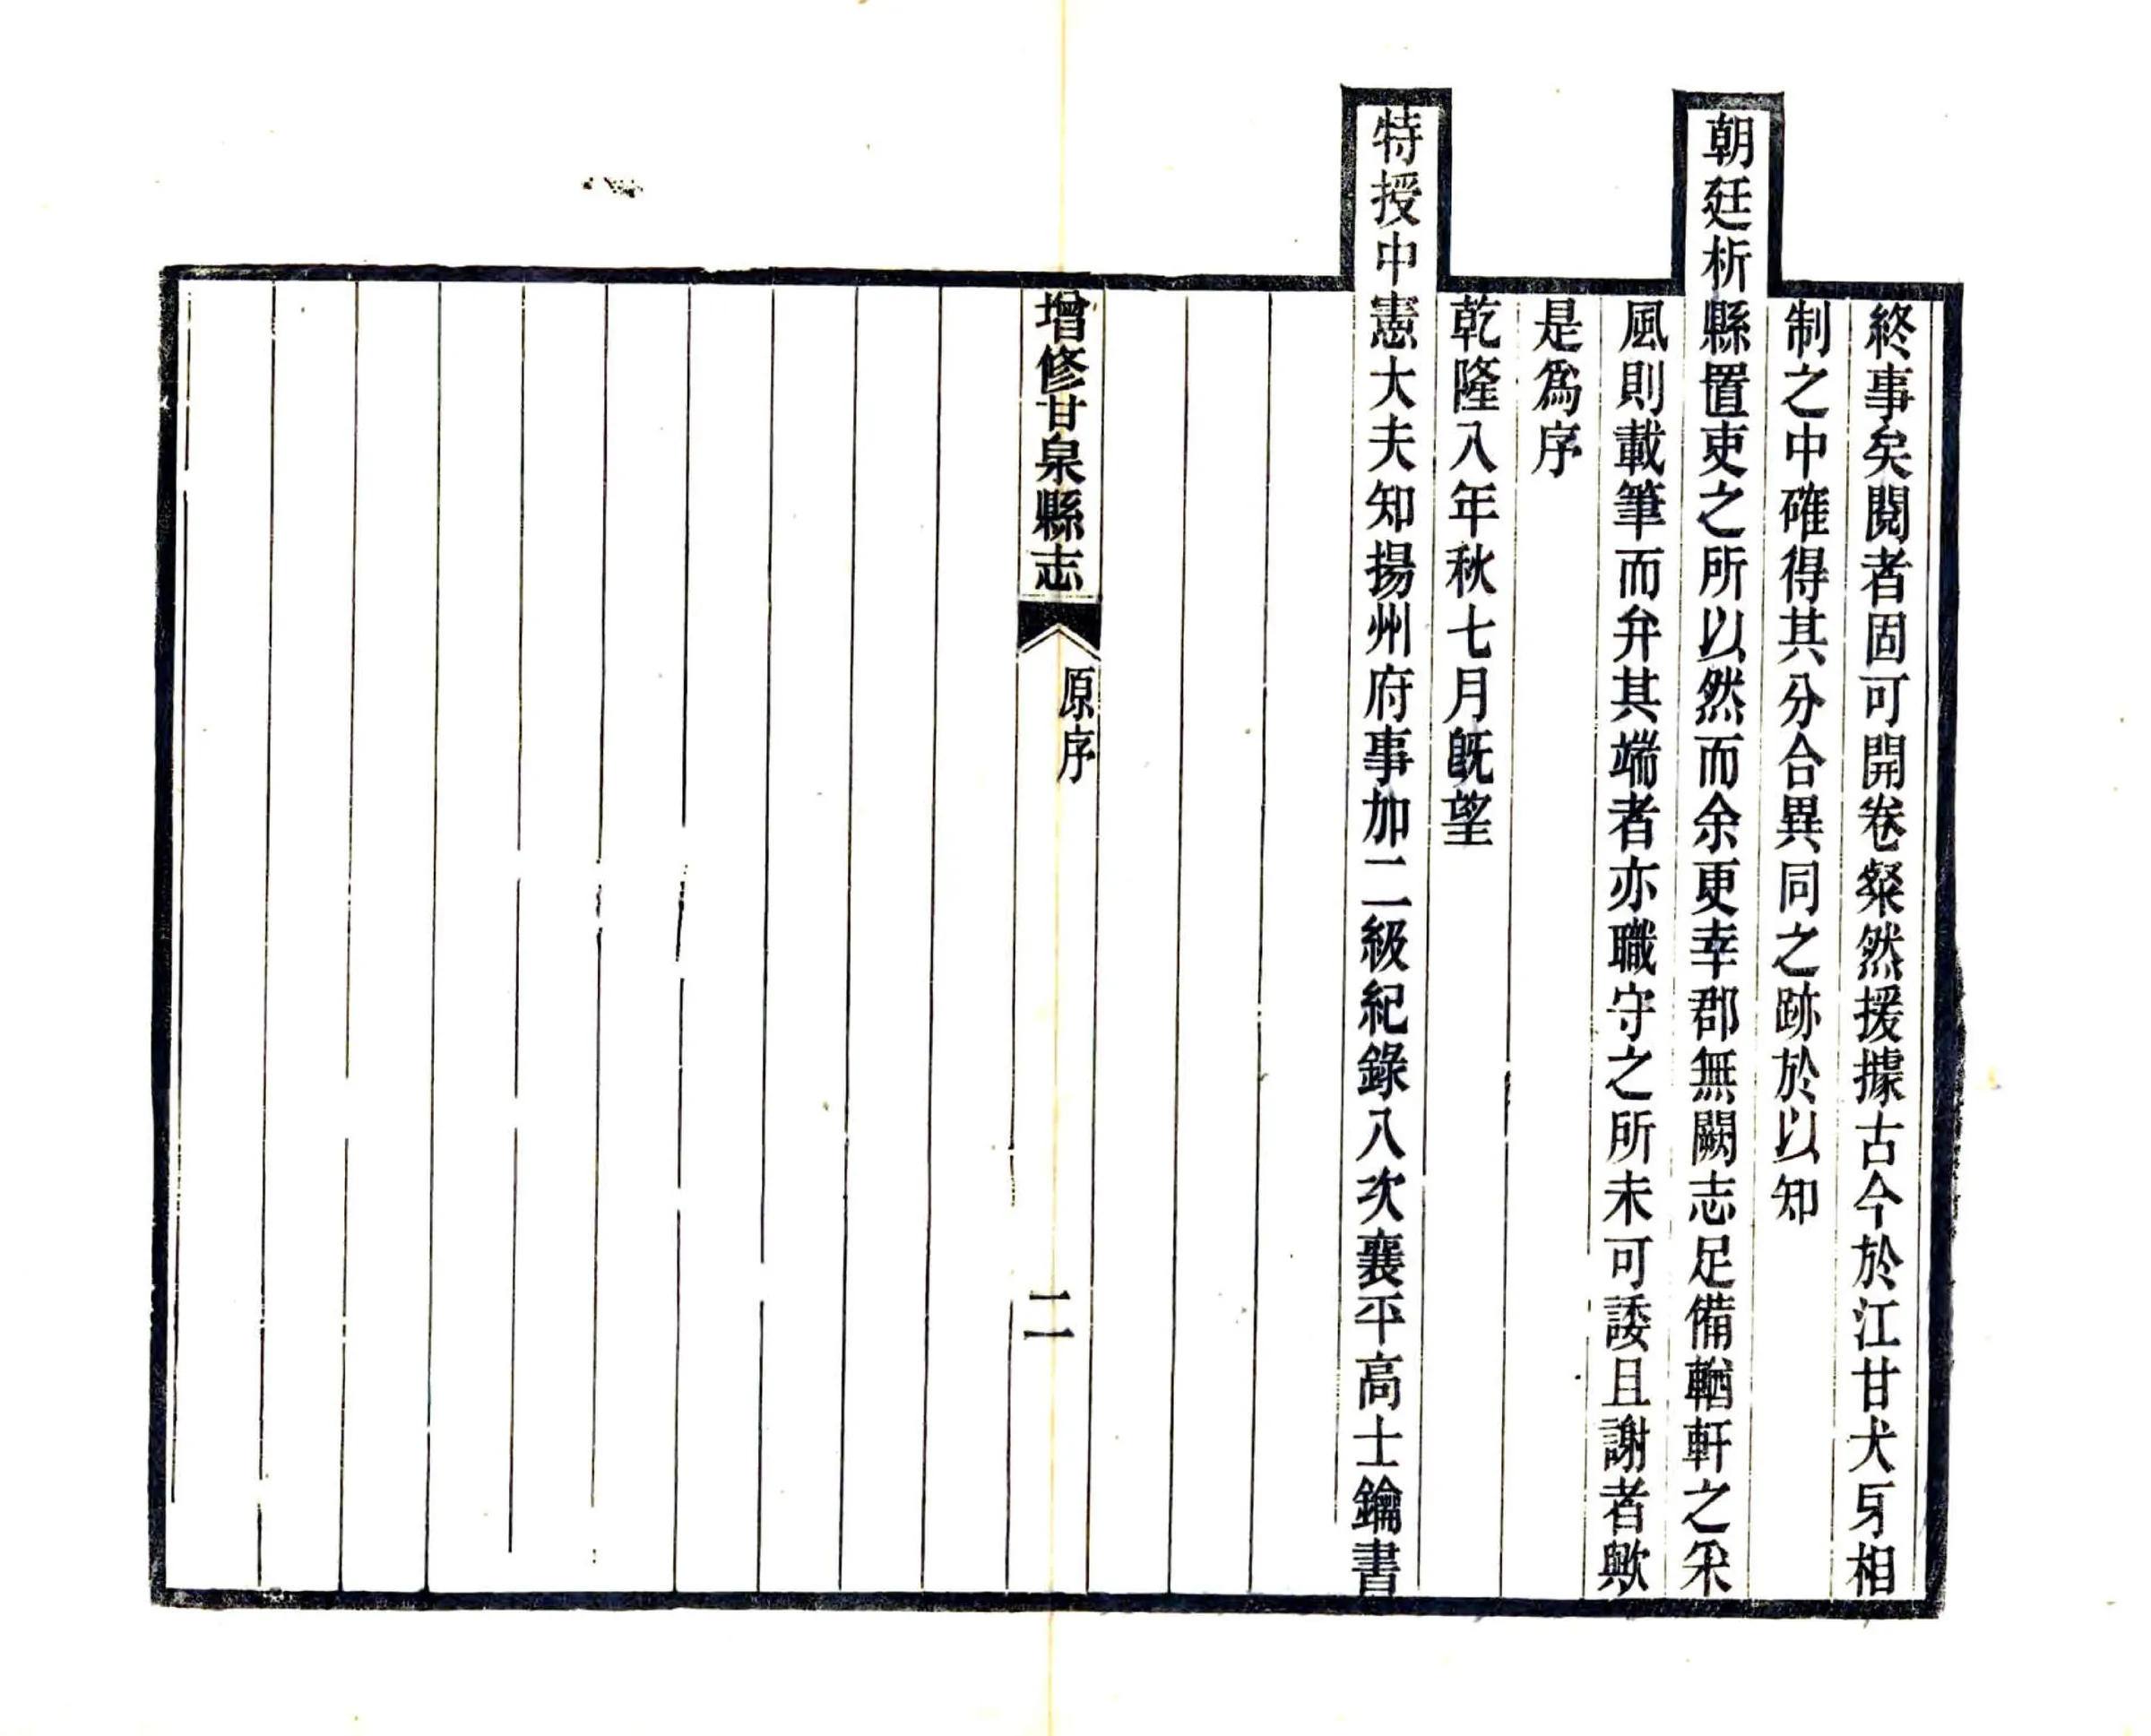 終事矣閱者固可開卷粲然援據古今於江甘犬牙相
制之中確得其分合異同之跡於以知
朝廷析縣置吏之所以然而余更幸郡無闕志足備輶軒之采
風則載筆而弁其端者亦職守之所未可諉且謝者歟
是爲序
乾隆八年秋七月旣望
特授中憲大夫知揚州府事加二級紀錄八次襄平高士鑰書
增修甘泉縣志
原序
二